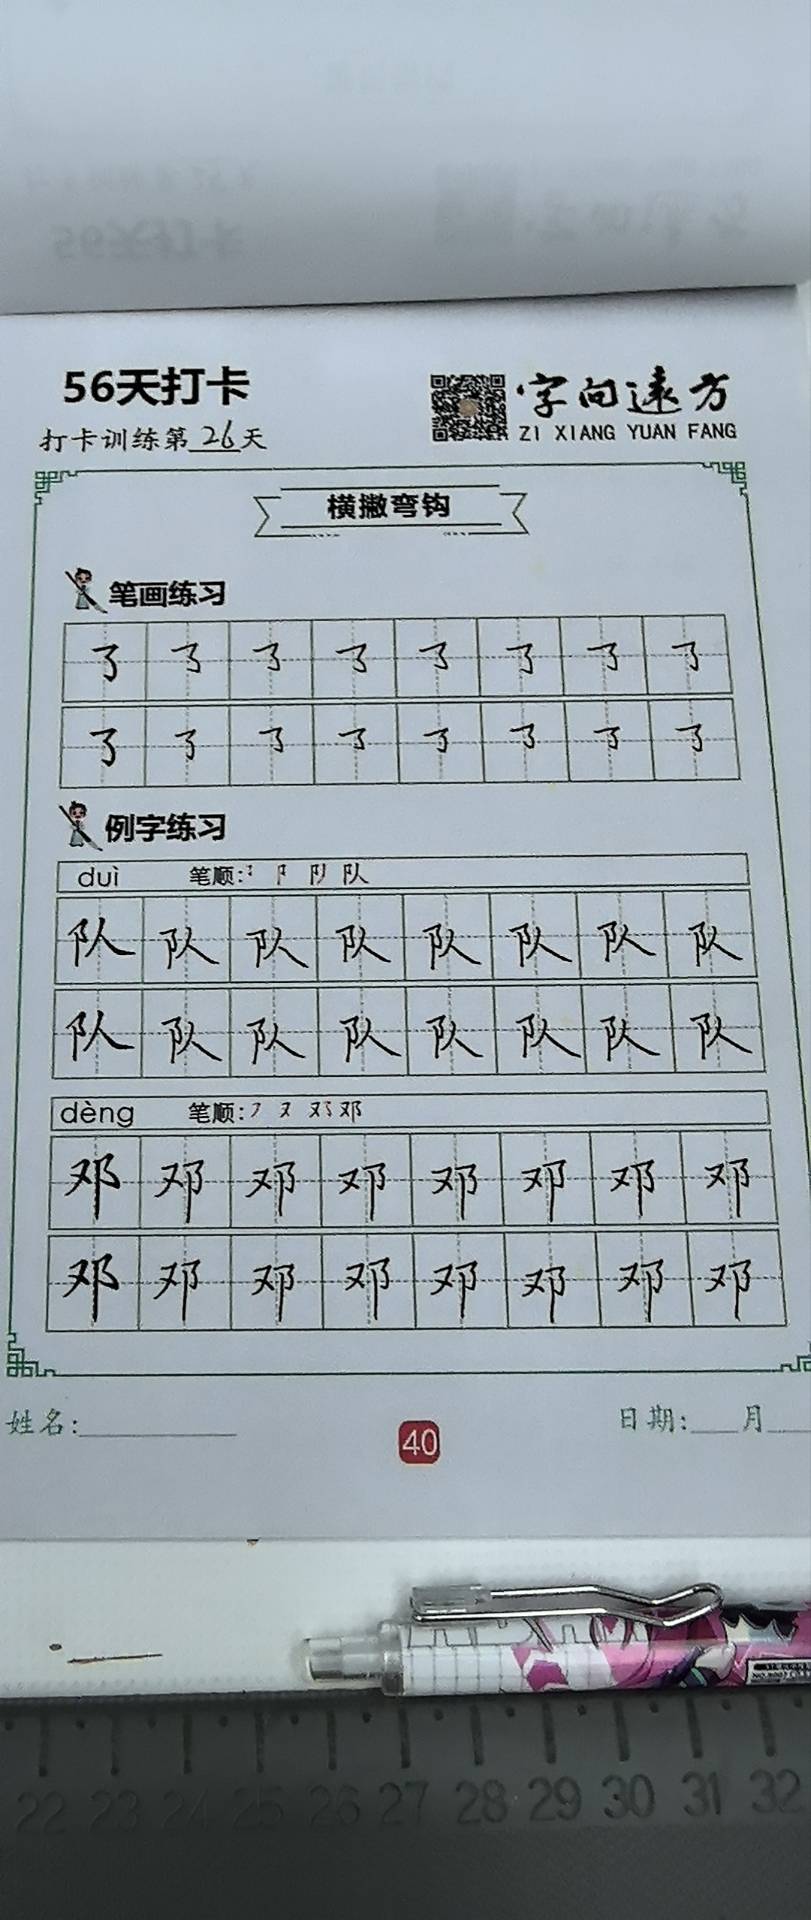 56天打卡
字向远方
打卡训练第26天
ZI XIANG YUAN FANG
横撇弯钩
笔画练习
例字练习
duì 笔顺: 队
队 队 队 队 队 队 队 队
队 队 队 队 队 队 队 队
dèng 笔顺: 又 邓
邓 邓 邓 邓 邓 邓 邓 邓
邓 邓 邓 邓 邓 邓 邓 邓
姓名:
40
日期: 月
22 23 24 25 26 27 28 29 30 31 32